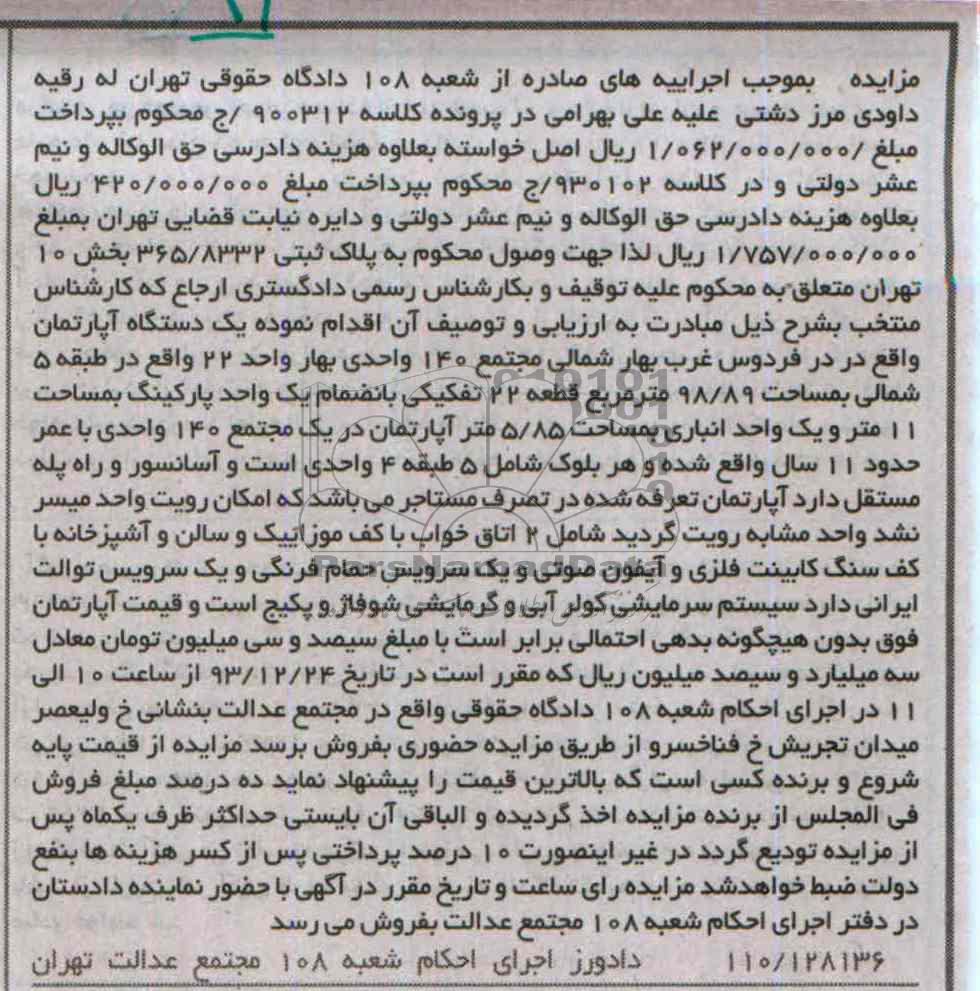 مزایده بموجب اجراییه های صادره از شعبه ۱۰۸ دادگاه حقوقی تهران له رقیه
داودی مرز دشتی علیه علی بهرامی در پرونده کلاسه ۹۰۰۳۱۲ /ج محکوم بپرداخت
مبلغ /۱/۰۶۲/۰۰۰/۰۰۰ ریال اصل خواسته بعلاوه هزینه دادرسی حق الوکاله و نیم
عشر دولتی و در کلاسه ۹۳۰۱۰۲/ج محکوم بپرداخت مبلغ ۴۲۰/۰۰۰/۰۰۰ ریال
بعلاوه هزینه دادرسی حق الوکاله و نیم عشر دولتی و دایره نیابت قضایی تهران بمبلغ
۱/۷۵۷/۰۰۰/۰۰۰ ریال لذا جهت وصول محکوم به پلاک ثبتی ۳۶۵/۸۳۳۲ بخش ۱۰
تهران متعلق به محکوم علیه توقیف و بکارشناس رسمی دادگستری ارجاع که کارشناس
منتخب بشرح ذیل مبادرت به ارزیابی و توصیف آن اقدام نموده یک دستگاه آپارتمان
واقع در در فردوس غرب بهار شمالی مجتمع ۱۴۰ واحدی بهار واحد ۲۲ واقع در طبقه ۵
شمالی بمساحت ۹۸/۸۹ مترمربع قطعه ۲۲ تفکیکی بانضمام یک واحد پارکینگ بمساحت
۱۱ متر و یک واحد انباری بمساحت ۵/۸۵ متر آپارتمان در یک مجتمع ۱۴۰ واحدی با عمر
حدود ۱۱ سال واقع شده و هر بلوک شامل ۵ طبقه ۴ واحدی است و آسانسور و راه پله
مستقل دارد آپارتمان تعرفه شده در تصرف مستاجر می باشد که امکان رویت واحد میسر
نشد واحد مشابه رویت گردید شامل ۲ اتاق خواب با کف موزاییک و سالن و آشپزخانه با
کف سنگ کابینت فلزی و آیفون صوتی و یک سرویس حمام فرنگی و یک سرویس توالت
ایرانی دارد سیستم سرمایشی کولر آبی و گرمایشی شوفاژ و پکیج است و قیمت آپارتمان
فوق بدون هیچگونه بدهی احتمالی برابر است با مبلغ سیصد و سی میلیون تومان معادل
سه میلیارد و سیصد میلیون ریال که مقرر است در تاریخ ۹۳/۱۲/۲۴ از ساعت ۱۰ الی
۱۱ در اجرای احکام شعبه ۱۰۸ دادگاه حقوقی واقع در مجتمع عدالت بنشانی خ ولیعصر
میدان تجریش خ فناخسرو از طریق مزایده حضوری بفروش برسد مزایده از قیمت پایه
شروع و برنده کسی است که بالاترین قیمت را پیشنهاد نماید ده درصد مبلغ فروش
فی المجلس از برنده مزایده اخذ گردیده و الباقی آن بایستی حداکثر ظرف یکماه پس
از مزایده تودیع گردد در غیر اینصورت ۱۰ درصد پرداختی پس از کسر هزینه ها بنفع
دولت ضبط خواهدشد مزایده رای ساعت و تاریخ مقرر در آگهی با حضور نماینده دادستان
در دفتر اجرای احکام شعبه ۱۰۸ مجتمع عدالت بفروش می رسد
۱۱۰/۱۲۸۱۳۶ دادورز اجرای احکام شعبه ۱۰۸ مجتمع عدالت تهران
ParsNamadData